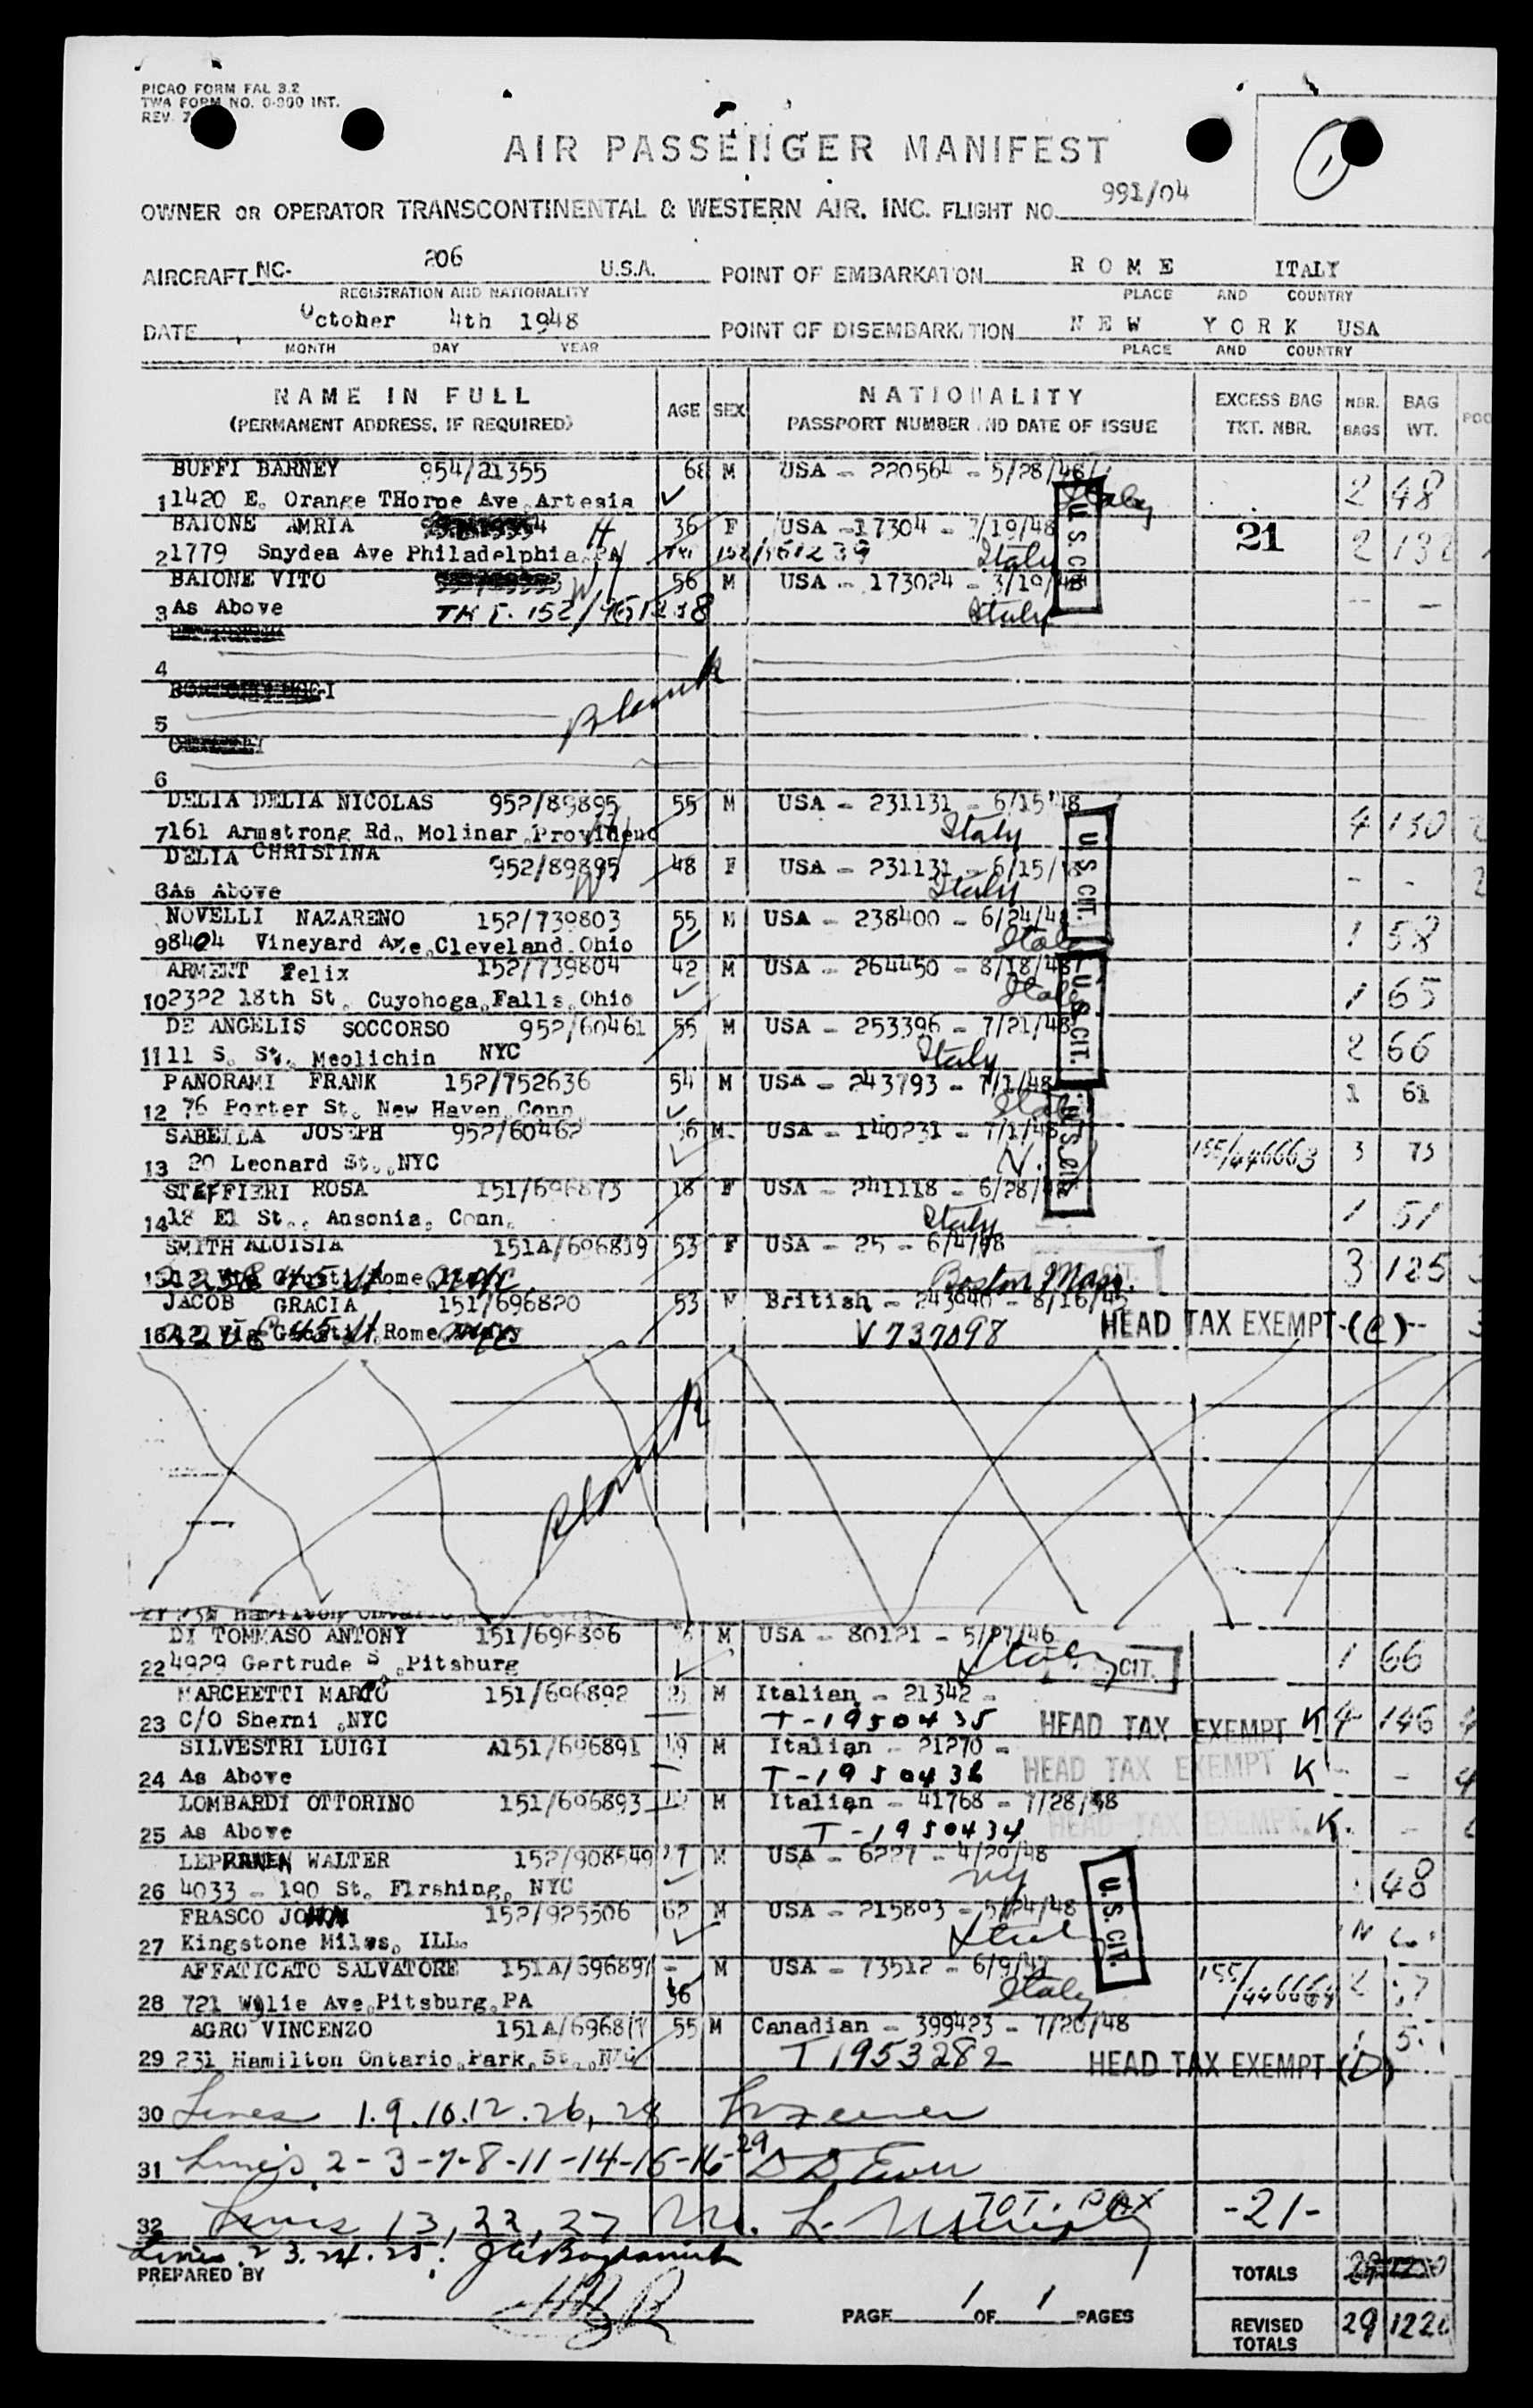 PICAO FORM FAL 3.2
TWA FORM NO. 0-900 INT.
REV. 7
AIR PASSENGER MANIFEST
1
OWNER OR OPERATOR TRANSCONTINENTAL & WESTERN AIR. INC. FLIGHT NO. 991/04
AIRCRAFT NC- 206 U.S.A. POINT OF EMBARKATON ROME ITALY
REGISTRATION AND NATIONALITY PLACE AND COUNTRY
DATE October 4th 1948 POINT OF DISEMBARKATION NEW YORK USA
MONTH DAY YEAR PLACE AND COUNTRY
NAME IN FULL AGE SEX NATIONALITY EXCESS BAG NBR. BAG
(PERMANENT ADDRESS, IF REQUIRED) PASSPORT NUMBER AND DATE OF ISSUE TKT. NBR. BAGS WT.
BUFFI BARNEY 954/21355 68 M USA - 220564 - 5/28/48
1 1420 E. Orange THorpe Ave Artesia Italy 2 48
BAIONE AMRIA 36 F USA - 17304 - /19/48 21
2 1779 Snydea Ave Philadelphia, PA Italy 2 132
BAIONE VITO 56 M USA - 173024 - 3/19/48
3 As Above TKT. 152/ Italy
U.S. CIT.
4
5 Blank
6
DELIA DELIA NICOLAS 952/89895 55 M USA - 231131 - 6/15/48
7 161 Armstrong Rd. Molinar, Providenc Italy 4 130
DELIA CHRISTINA 952/89895 48 F USA - 231131 - 6/15/
8 As Above Italy - -
U.S. CIT.
NOVELLI NAZARENO 152/739803 55 M USA - 238400 - 6/24/48
9 8404 Vineyard Ave, Cleveland. Ohio Italy 1 58
ARMENT Felix 152/739804 42 M USA - 264450 - 8/18/48
10 2322 18th St. Cuyohoga, Falls, Ohio Italy 1 65
DE ANGELIS SOCCORSO 952/60461 55 M USA - 253396 - 7/21/48
11 11 S. St. Meolichin NYC Italy 2 66
U.S. CIT.
PANORAMI FRANK 152/752636 54 M USA - 243793 - 7/1/48 1 61
12 76 Porter St. New Haven, Conn Italy
SABELLA JOSEPH 952/60462 36 M USA - 140231 - 7/1/48
13 20 Leonard St., NYC N. 155/446663 3 73
STEFFIERI ROSA 151/696873 18 F USA - 241118 - 6/28/
14 18 El St., Ansonia, Conn. Italy 1 51
U.S. CIT.
SMITH ALOISIA 151A/696819 53 F USA - 25 - 6/4/48
15 Rome Boston Mass. 3 125
JACOB GRACIA 151/696820 53 British - 8/16/
16 Rome V737098 HEAD TAX EXEMPT (e)
Blank
21 Hamilton
DI TOMMASO ANTONY 151/696896 M USA - 80121 - 5/27/46
22 4929 Gertrude S, Pitsburg Italy CIT. 1 66
MARCHETTI MARIO 151/696892 M Italian - 21342 -
23 C/O Sherni, NYC T-1950435 HEAD TAX EXEMPT K 4 146
SILVESTRI LUIGI A151/696891 M Italian - 21270 -
24 As Above T-1950436 HEAD TAX EXEMPT K - -
LOMBARDI OTTORINO 151/696893 M Italian - 41768 - 7/28/48
25 As Above T-1950434 HEAD TAX EXEMPT K. -
WALTER 152/908549 M USA - 6227 - 4/20/48
26 4033 - 190 St. Flrshing, NYC NY 48
FRASCO JOHN 152/925506 62 M USA - 215803 - 5/24/48
27 Kingstone Milws, ILL.
U.S. CIT.
AFFATICATO SALVATORE 151A/696897 - M USA - 73512 - 6/9/47
28 721 Wylie Ave, Pitsburg, PA 36 Italy 155/446664 2
AGRO VINCENZO 151A/696817 55 M Canadian - 399423 - 7/20/48
29 231 Hamilton Ontario, Park, St., T1953282 HEAD TAX EXEMPT (D)
30 Lines 1.9.10.12.26, 28
31 Lines 2-3-7-8-11-14-15-16-29
32 Lines 13, 22, 27 M. L. Murphy TOT. PAX -21-
Lines 23.24.25.
PREPARED BY TOTALS
PAGE 1 OF 1 PAGES REVISED TOTALS 29